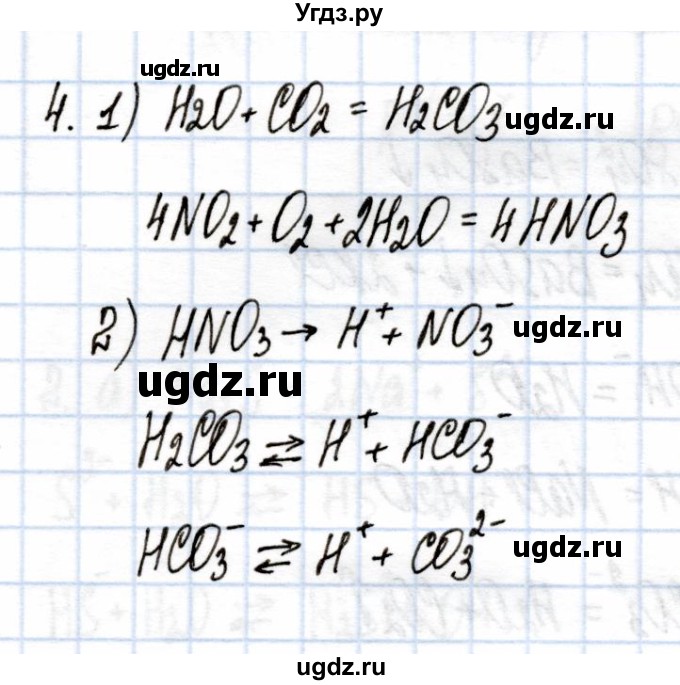 Угдз.ру
ugdz.ru
4. 1) H2O + CO2 = H2CO3 ugdz.ru
4NO2 + O2 + 2H2O = 4HNO3
2) HNO3 → H⁺ + NO3⁻ ugdz.ru
ugdz.ru
H2CO3 ⇄ H⁺ + HCO3⁻
HCO3⁻ ⇄ H⁺ + CO3²⁻ ugdz.ru
ugdz.ru